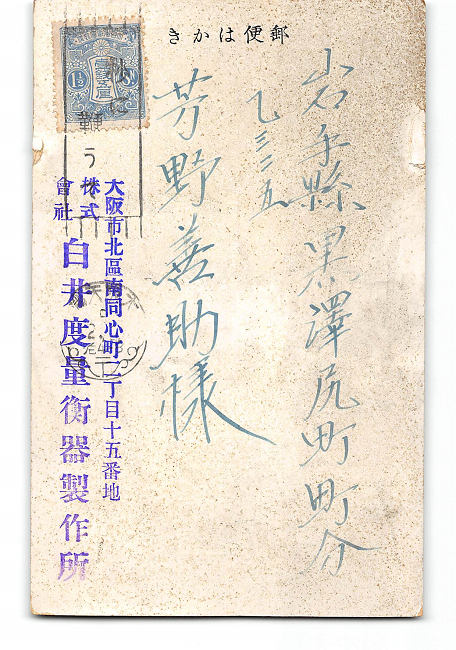 郵便はかき
岩手縣黒澤尻町町分
乙三二五
芳野善助様
大阪市北區南同心町二丁目十五番地
株式會社
白井度量衡器製作所
1½ Sn